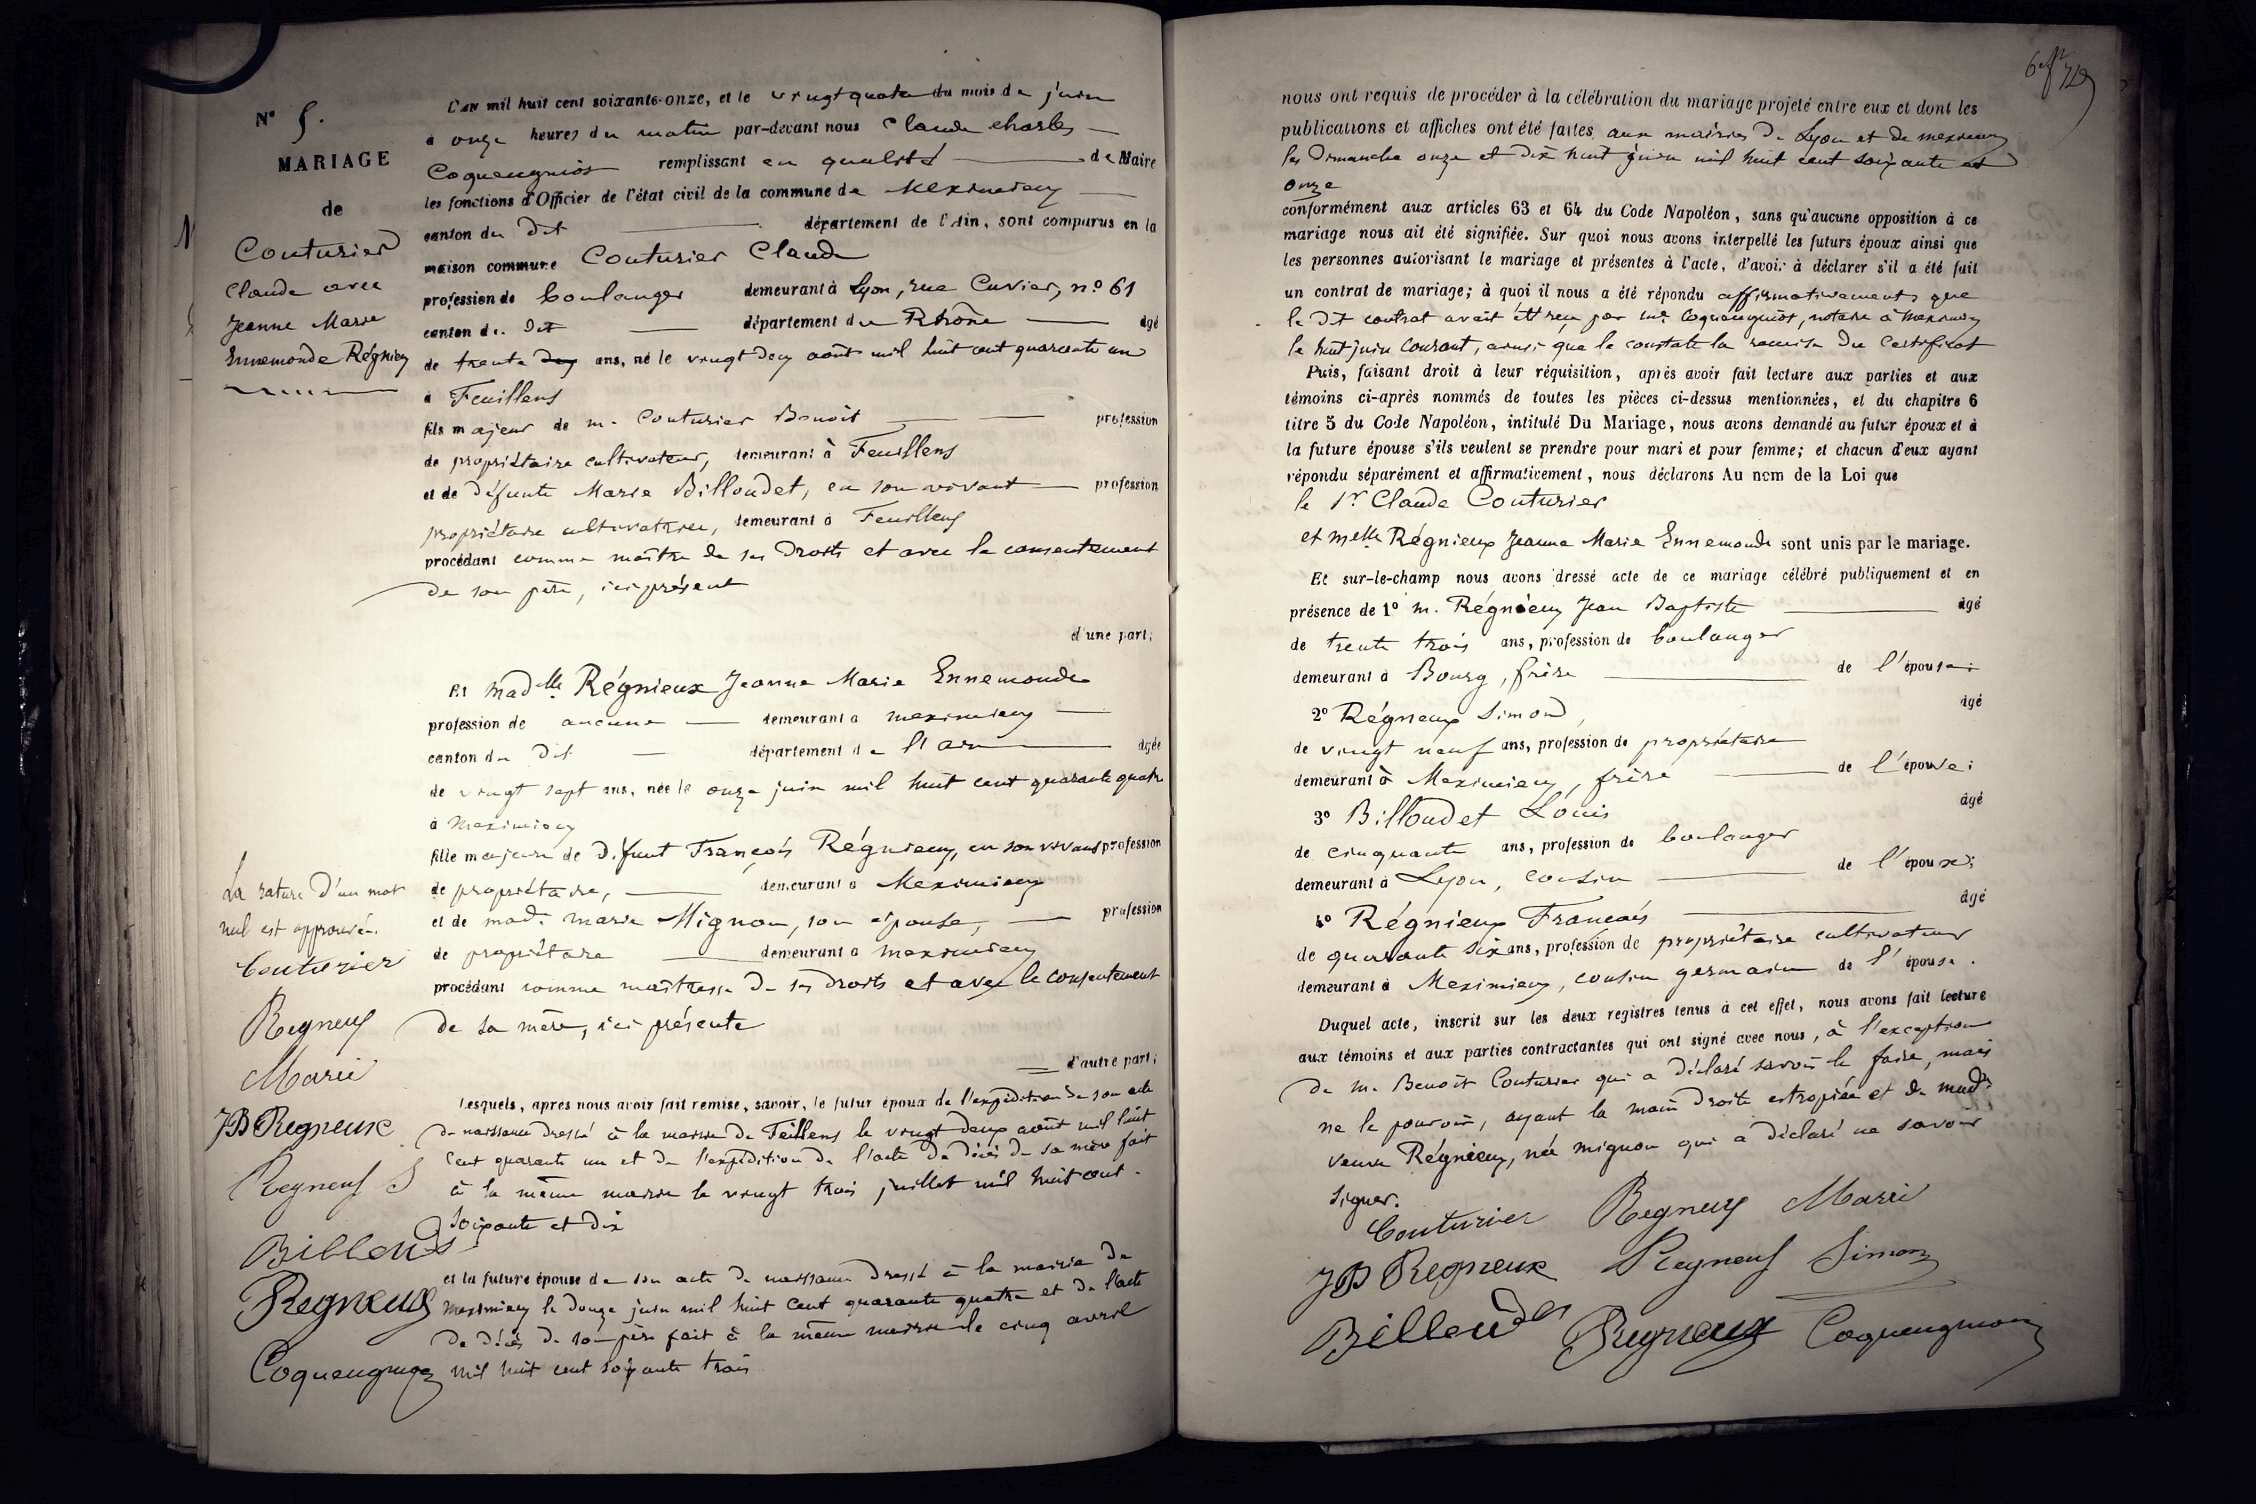 N° 5.
MARIAGE
de
Couturier
Claude avec
Jeanne Marie
Ennemonde Régnieux
L'an mil huit cent soixante-onze, et le vingt quatre du mois de juin
à onze heures du matin par-devant nous Claude Charles
Coqueugniot remplissant en qualité de Maire
les fonctions d'Officier de l'état civil de la commune de Meximieux
canton du dit département de l'Ain, sont comparus en la
maison commune Couturier Claude
profession de boulanger demeurant à Lyon, rue Cuvier, n° 61
canton du dit département du Rhône âgé
de trente ans, né le vingt deux août mil huit cent quarante un
à Feuillens
fils majeur de m. Couturier Benoît profession
de propriétaire cultivateur, demeurant à Feuillens
et de défunte Marie Billoudet, en son vivant profession
propriétaire cultivatrice, demeurant à Feuillens
procédant comme maître de ses droits et avec le consentement
de son père, ici présent
d'une part;
Et madelle Régnieux Jeanne Marie Ennemonde
profession de aucune demeurant à meximieux
canton du dit département de l'ain âgée
de vingt sept ans, née le onze juin mil huit cent quarante quatre
à Meximieux
fille majeure de défunt François Régnieux, en son vivant profession
de propriétaire, demeurant à Meximieux
et de made marie Mignon, son épouse, profession
de propriétaire demeurant à meximieux
procédant comme maîtresse de ses droits et avec le consentement
de sa mère, ici présente
d'autre part;
lesquels, après nous avoir fait remise, savoir, le futur époux de l'expédition de son acte
de naissance dressé à la mairie de Feillens le vingt deux août mil huit
cent quarante un et de l'expédition de l'acte de décès de sa mère fait
à la même mairie le vingt trois juillet mil huit cent
soixante et dix
et la future épouse de son acte de naissance dressé à la mairie de
meximieux le douze juin mil huit cent quarante quatre et de l'acte
de décès de son père fait à la même mairie le cinq avril
mil huit cent soixante trois
La rature d'un mot
nul est approuvée.
Couturier
Regneux
Marie
JB Regneux
Regneux S
Billoud
Regneux
Coqueugniot
nous ont requis de procéder à la célébration du mariage projeté entre eux et dont les
publications et affiches ont été faites aux mairies de Lyon et de meximieux
les dimanche onze et dix huit juin mil huit cent soixante et
onze
conformément aux articles 63 et 64 du Code Napoléon, sans qu'aucune opposition à ce
mariage nous ait été signifiée. Sur quoi nous avons interpellé les futurs époux ainsi que
les personnes autorisant le mariage et présentes à l'acte, d'avoir à déclarer s'il a été fait
un contrat de mariage; à quoi il nous a été répondu affirmativement que
le dit contrat avait été reçu par me Coqueugniot, notaire à Meximieux
le huit juin courant, ainsi que le constate la remise du certificat
Puis, faisant droit à leur réquisition, après avoir fait lecture aux parties et aux
témoins ci-après nommés de toutes les pièces ci-dessus mentionnées, et du chapitre 6
titre 5 du Code Napoléon, intitulé Du Mariage, nous avons demandé au futur époux et à
la future épouse s'ils veulent se prendre pour mari et pour femme; et chacun d'eux ayant
répondu séparément et affirmativement, nous déclarons Au nom de la Loi que
le Sr Claude Couturier
et melle Régnieux Jeanne Marie Ennemonde sont unis par le mariage.
Et sur-le-champ nous avons dressé acte de ce mariage célébré publiquement et en
présence de 1° m. Régnieux Jean Baptiste âgé
de trente trois ans, profession de boulanger
demeurant à Bourg, frère de l'épouse;
2° Régnieux Simon, âgé
de vingt neuf ans, profession de propriétaire
demeurant à Meximieux, frère de l'épouse;
3° Billoudet Louis âgé
de cinquante ans, profession de boulanger
demeurant à Lyon, cousin de l'époux;
4° Régnieux François âgé
de quarante six ans, profession de propriétaire cultivateur
demeurant à Meximieux, cousin germain de l'épouse.
Duquel acte, inscrit sur les deux registres tenus à cet effet, nous avons fait lecture
aux témoins et aux parties contractantes qui ont signé avec nous, à l'exception
de m. Benoît Couturier qui a déclaré savoir le faire, mais
ne le pouvoir, ayant la main droite estropiée et de made
veuve Régnieux, née mignon qui a déclaré ne savoir
signer.
Couturier Regneux Marie
JB Regneux Regneux Simon
Billoud Regneux Coqueugniot